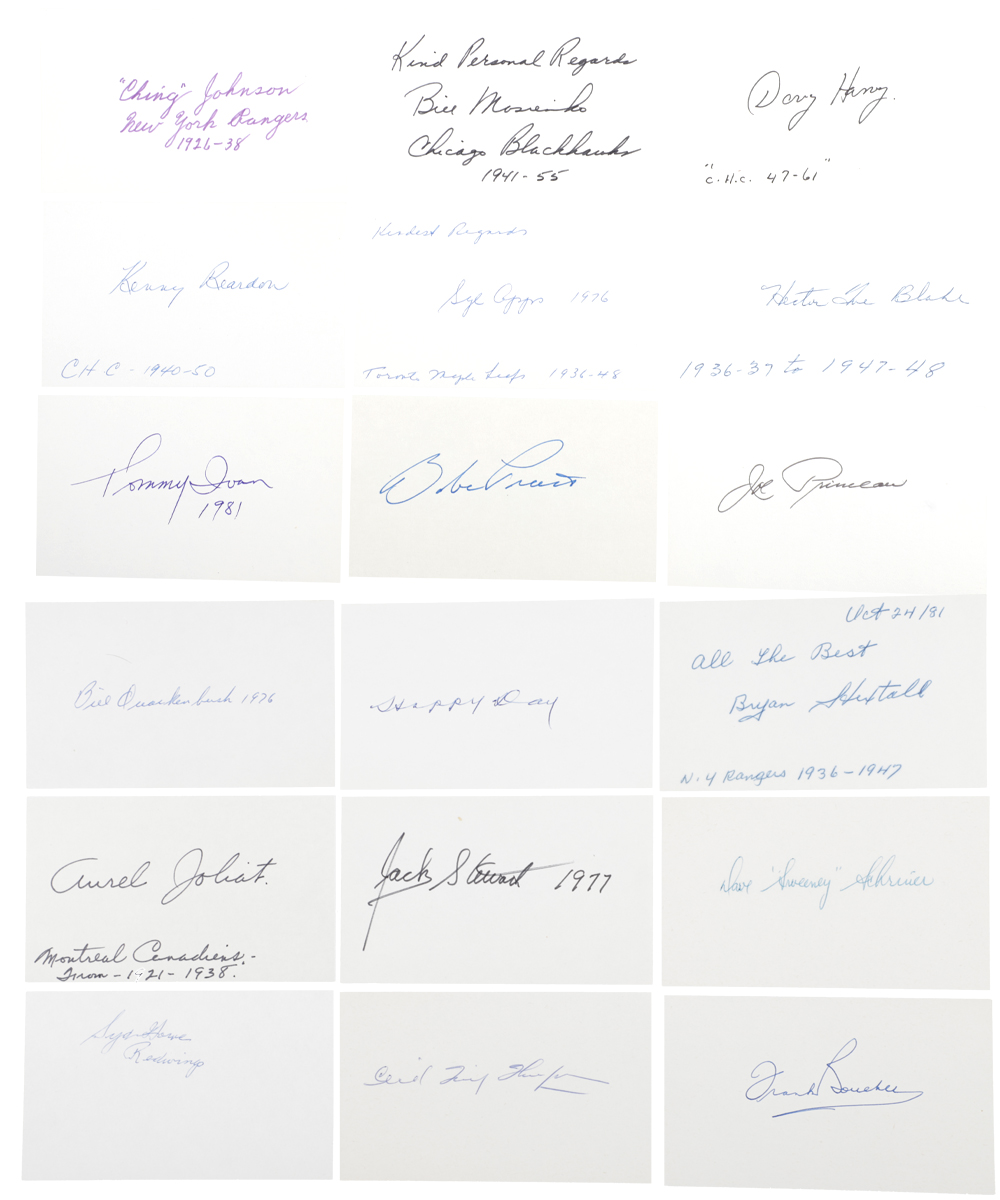 "Ching" Johnson
New York Rangers
1926-38
Kind Personal Regards
Bill Mosienko
Chicago Blackhawks
1941-55
Doug Harvey.
"C.H.C. 47-61"
Kenny Reardon
C H C - 1940-50
Kindest Regards
Syl Apps 1976
Toronto Maple Leafs 1936-48
Hector Toe Blake
1936-37 to 1947-48
Tommy Ivan
1981
Babe Pratt
Joe Primeau
Bill Quackenbush 1976
Happy Day
Oct 24/81
All The Best
Bryan Hextall
N.Y Rangers 1936-1947
Aurel Joliat.
Montreal Canadiens.-
From - 1-21- 1938.
Jack Stewart 1977
Dave "Sweeney" Schriner
Syd Howe
Redwings
Cecil Tiny Thompson
Frank Boucher